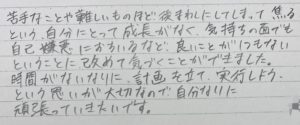 苦手なことや難しいものほど後まわしにしてしまって焦る
という、自分にとって成長がなく、気持ちの面でも
自己嫌悪におちいるなど、良いことが1つもない
ということに改めて気づくことができました。
時間がないなりに、計画を立て、実行しよう
という思いが大切なので自分なりに
頑張っていきたいです。